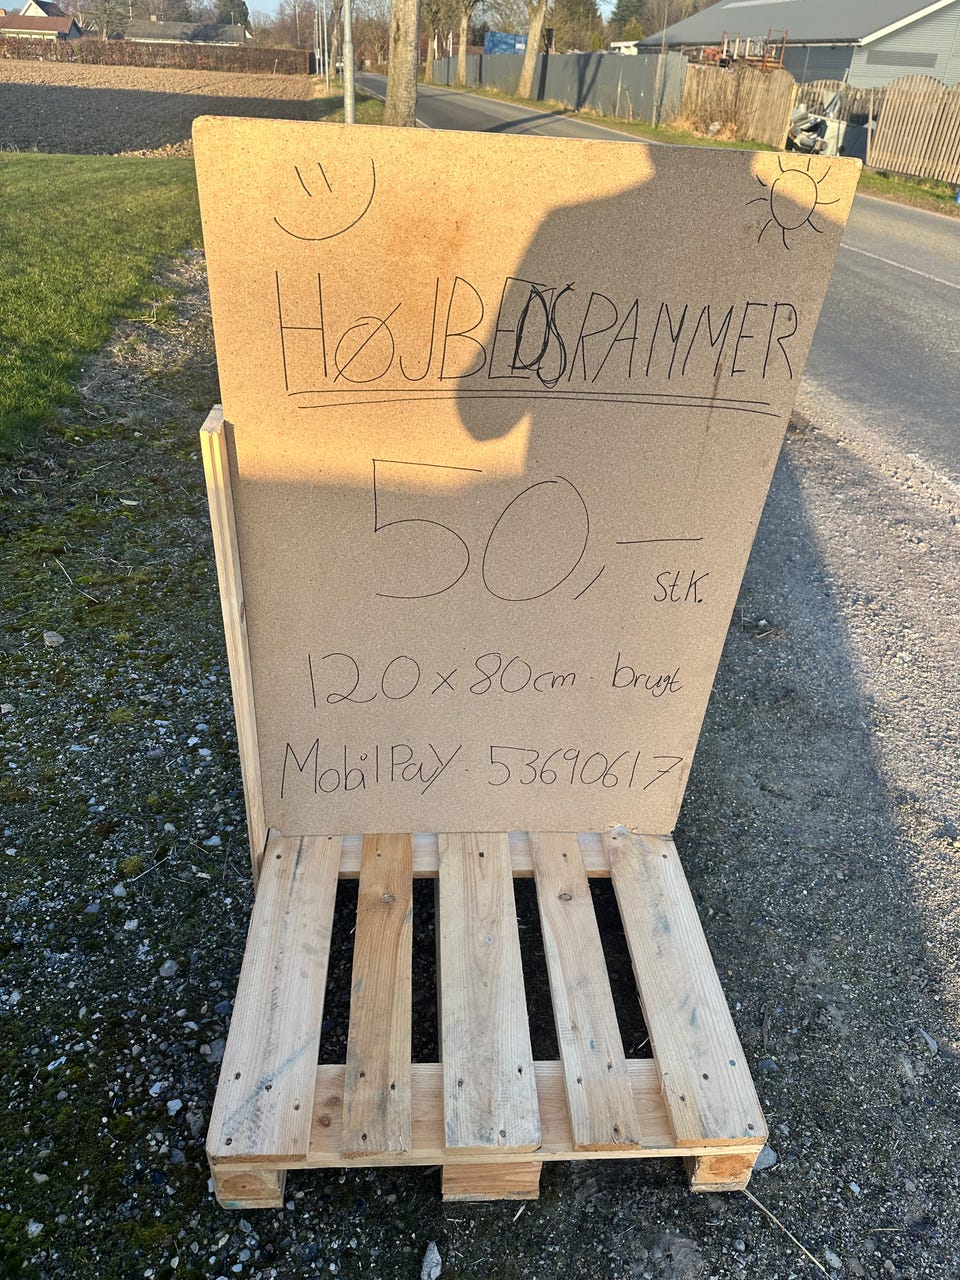 HØJBEDSRAMMER
50,-
stk.
120 x 80cm - brugt
MobilPay - 53690617